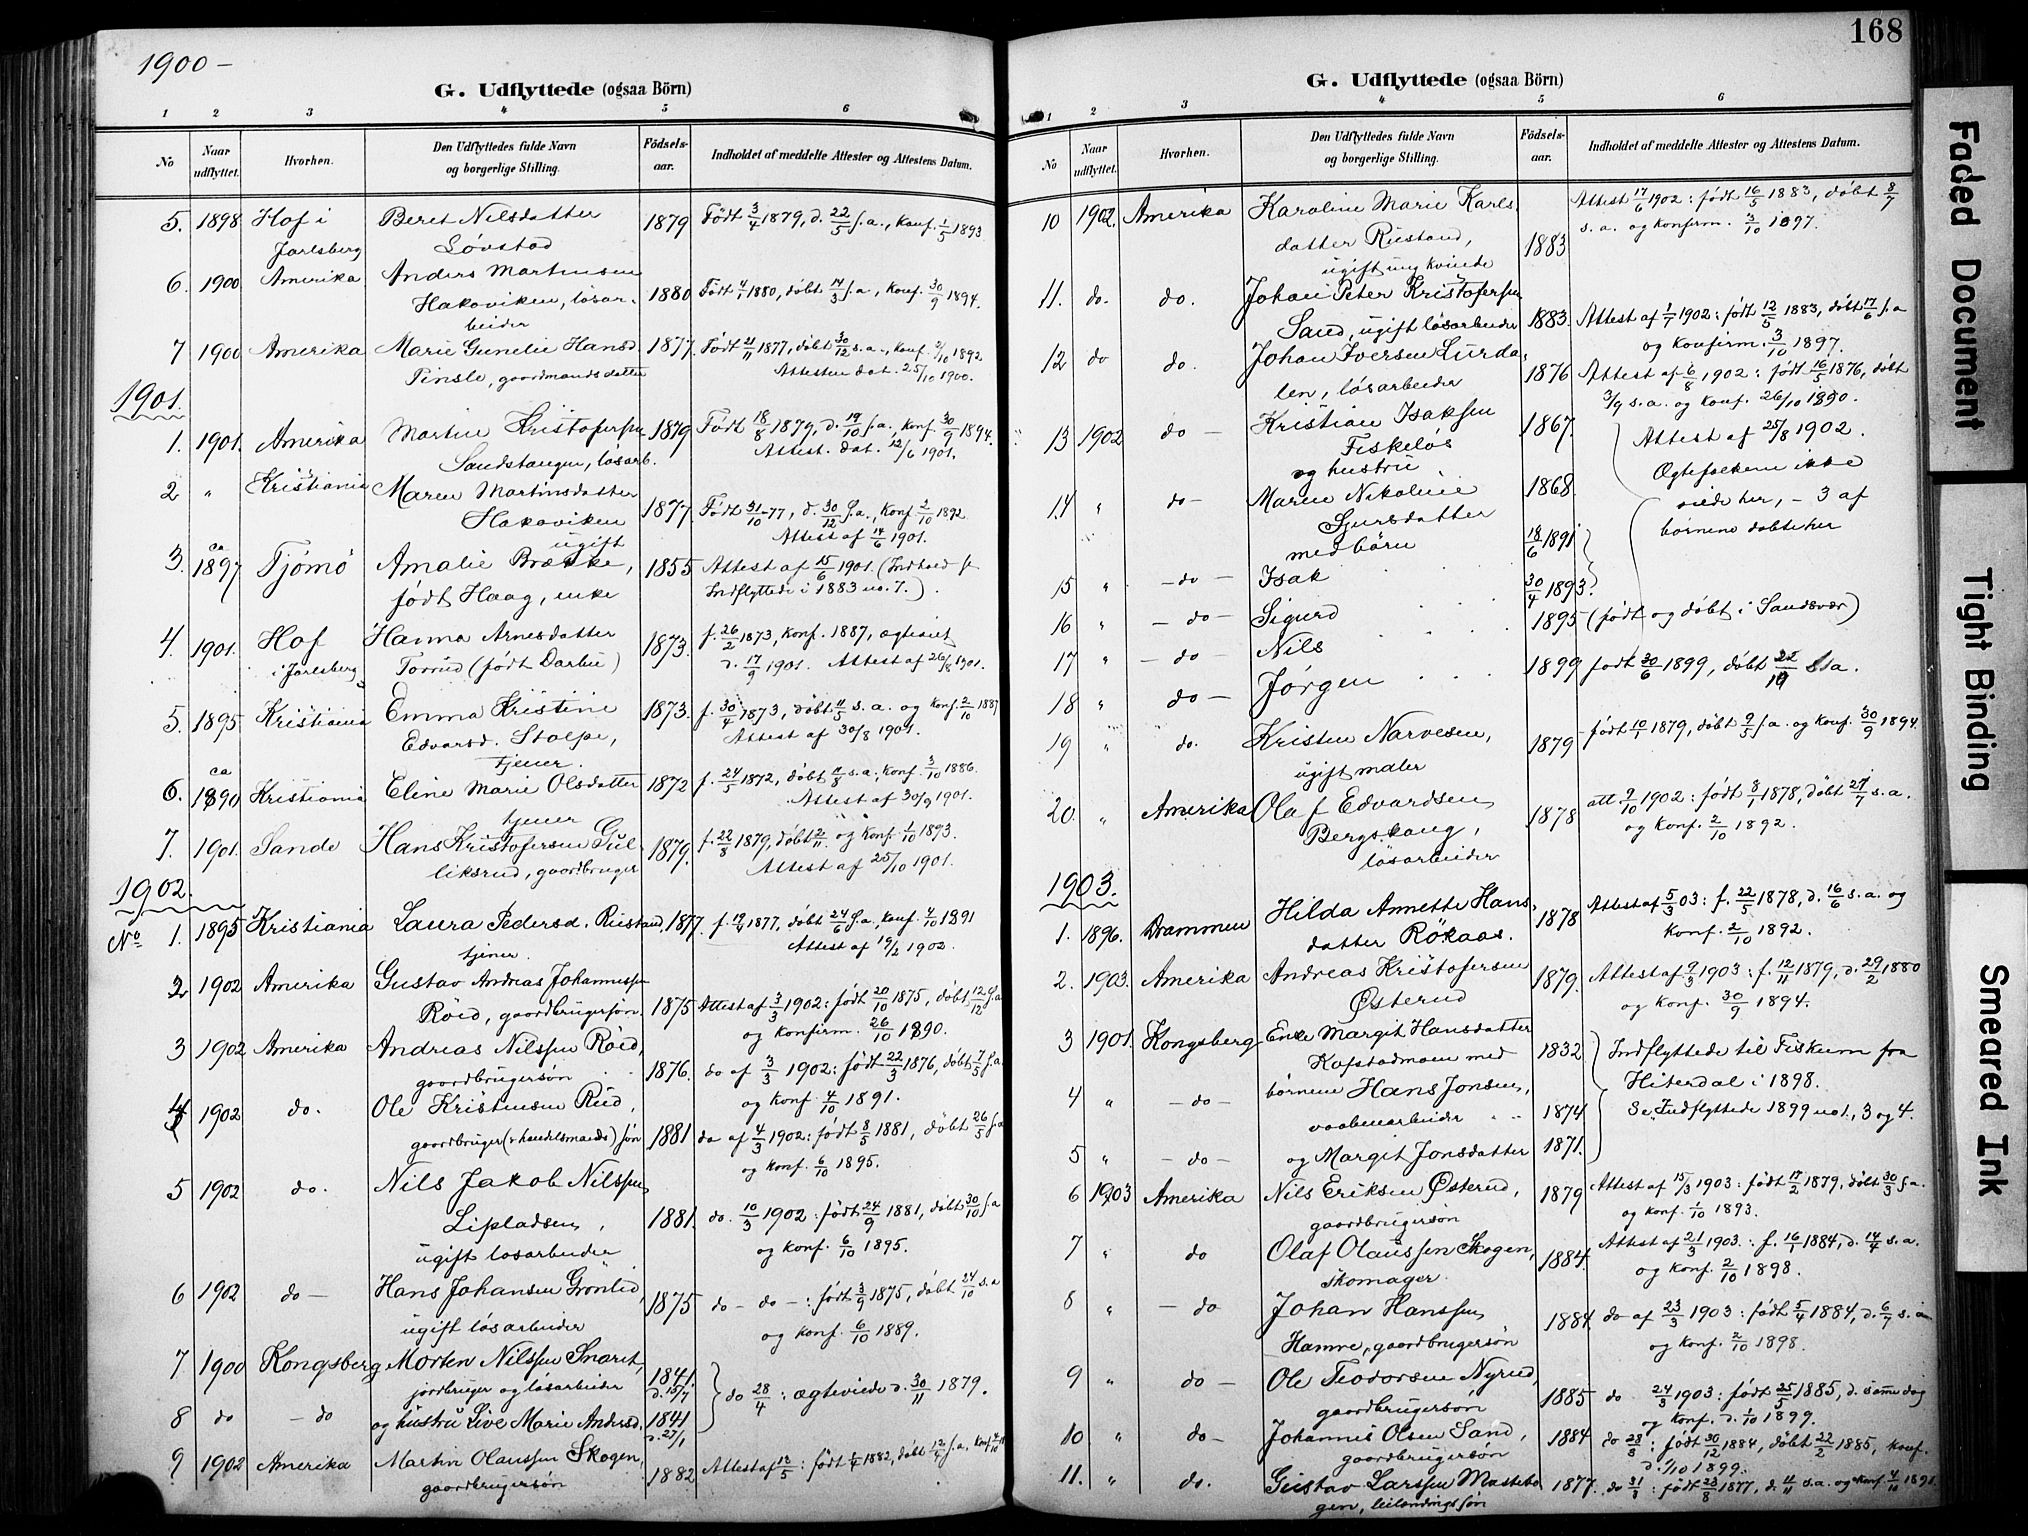 1900 –
G. Udflyttede (ogsaa Börn)
1 2 3 4 5 6
No
Naar udflyttet.
Hvorhen.
Den Udflyttedes fulde Navn og borgerlige Stilling.
Födsels-aar.
Indholdet af meddelte Attester og Attestens Datum.
5. 1898 Hof i Beret Nilsdatter 1879 Født 3/4 1879, d. 22/5 s.a., Konf. 1/5 1893
Jarlsberg Løvstad
6. 1900 Amerika Anders Martinsen
Hakaviken, løsar- 1880 Født 4/1 1880, døbt 14/3 s.a., Konf. 30/9 1894.
beider
7 1900 Amerika Marie Gunelie Hansd. 1877. Født 21/11 1877, døbt 30/12 s.a., Konf. 2/10 1892
Tinsle, gaardmandsdatter Attesten dat. 25/10 1900.
1901.
1. 1901. Amerika Martin Kristofersen 1879 Født 18/8 1879, d. 19/10 s.a., Konf. 30/9 1894.
Sandstangen, løsarb. Attest. dat. 12/6 1901.
2 " Kristiania Maren Martinsdatter 1877. Født 31/10 -77, d. 30/12 s.a., Konf 2/10 1892
Hakaviken Attest af 14/6 1901.
ugift
3. ca 1897 Tjömö Amalie Brække, 1855 Attest af 15/6 1901. (Indhold se
født Haag, enke Indflyttede i 1883 no. 7.)
4. 1901. Hof Hanna Arnesdatter 1873. f. 26/2 1873, Konf. 1887, ægteviet
i Jarlsberg Torrud (født Darbu) d. 17/9 1901. Attest af 26/8 1901.
5. 1895 Kristiania Emma Kristine 1873. f. 30/4 1873, døbt 11/5 s.a. og Konf. 2/10 1887
Edvarsd. Stolpe, Attest af 30/8 1901.
tjener.
6. ca 1890 Kristiania Eline Marie Olsdatter 1872 f. 24/5 1872, døbt 11/8 s.a., Konf. 3/10 1886.
tjener Attest af 30/9 1901.
7. 1901. Sande Hans Kristofersen Gul 1879. f. 22/8 1879, døbt 2/11 og Konf. 1/10 1893.
liksrud, gaardbruger Attest af 25/10 1901.
1902.
No 1. 1895 Kristiania Laura Pedersd. Rustand, 1877. f. 19/4 1877, døbt 24/6 s.a., Konf. 4/10 1891
tjener. Attest af 19/2 1902.
2 1902 Amerika Gustav Andreas Johannessen
Röid, gaardbrugersøn. 1875 Attest af 3/3 1902: født 20/10 1875, døbt 12/12 s.a
og konfirm. 26/10 1890.
3 1902 Amerika Andreas Nilssen Röid,
gaardbrugersøn 1876. do af 3/3 1902: født 22/3 1876, døbt 7/5 s.a.
og Konf. 4/10 1891.
4 1902 do. Ole Kristensen Rud,
gaardbruger (& handelsmands) søn 1881 do af 4/3 1902: født 8/5 1881, døbt 26/5 s.a
og Konf. 6/10 1895.
5 1902 do. Nils Jakob Nilssen
Lipladsen, 1881. do. 10/3 1902: født 24/9 1881, døbt 30/10 s.a
ugift løsarbeider og Konf. 6/10 1895.
6 1902 do – Hans Johansen Grönlid,
ugift løsarbeider 1875 do – do –: født 3/9 1875, døbt 24/10 s.a
og konf. 6/10 1889.
7 1900 Kongsberg Morten Nilssen Snaret, 1841.
jordbruger og løsarbeider d. 15/7 do 28/4: ægteviede d. 30/11 1879.
8 do – do og hustru Live Marie Andersd. 1841
d. 27/1
9 1902 Amerika Martin Olaussen Skogen,
gaardbrugersøn 1882 Attest af 13/5: født 1/4 1882, døbt 12/4 s.a., Konf 4/10
168
G. Udflyttede (ogsaa Börn)
1 2 3 4 5 6
No
Naar udflyttet.
Hvorhen.
Den Udflyttedes fulde Navn og borgerlige Stilling.
Födsels-aar.
Indholdet af meddelte Attester og Attestens Datum.
10 1902. Amerika Karoline Marie Karls Attest 17/6 1902: født 16/5 1883, døbt 8/7
datter Rustand, 1883 s.a. og konfirm. 3/10 1897.
ugift ung kvinde
11. do. do. Johan Peter Kristofersen
Sand, ugift løsarbeider 1883. Attest af 1/7 1902: født 12/5 1883, døbt 17/6 s.a
og konfirm. 3/10 1897.
12 do do. Johan Iversen Lurda-
len, løsarbeider 1876 Attest af 6/8 1902: født 16/5 1876, døbt
3/9 s.a. og Konf. 26/10 1890.
13 1902 do – Kristian Isaksen 1867. Attest af 25/8 1902.
Fiskeløs
og hustru Ægtefolkene ikke
14 " do – Maren Nikoline 1868. viede her, – 3 af
Sjursdatter børnene døbte her
med børn 18/6 1891
15 " – do – Isak 30/4 1893.
16 " – do – Sigurd 1895 (født og døbt i Sandsvær)
17 " – do – Nils 1899 født 30/6 1899, døbt 22/10 s.a.
18 " do – Jørgen
19 " do. Kristen Narvesen, 1879 – født 10/1 1879, døbt 9/5 s.a. og Konf. 30/9 1894.
ugift maler
20. " Amerika Olaf Edvardsen 1878 att 9/10 1902: født 8/1 1878, døbt 27/7 s.a.
Bergskaug, og Konf. 2/10 1892.
løsarbeider
1903.
1. 1896. Drammen Hilda Annette Hans. 1878 Attest af 5/3 03: f. 22/5 1878, d. 16/6 s.a. og
datter Rökaas. Konf. 2/10 1892.
2. 1903. Amerika Andreas Kristofersen 1879. Attest af 9/3 1903: f. 12/11 1879, d. 29/2 1880
Østerud og Konf. 30/9 1894.
3 1901. Kongsberg Enke Margit Hansdatter
Kopstadmoen med 1832 Indflyttede til Fiskum fra
børnene Hans Jonsen, Hiterdal i 1898.
4 " – do – vaabenarbeider 1874 Se Indflyttede 1899 no 1, 3 og 4.
5 " – do – og Margit Jonsdatter 1871.
6 1903 Amerika Nils Eriksen Østerud, 1879 Attest af 15/3 1903: født 17/2 1879, døbt 30/3 s.a.
gaardbrugersøn og konf. 1/10 1893.
7 " do Olaf Olaussen Skogen, 1884. Attest af 21/3 1903.: f. 16/1 1884, d. 14/4 s.a.
skomager. og Konf. 2/10 1898.
8 " – do Johan Hanssen 1884. do af 23/3 1903: født 5/4 1884, d. 6/7 s.a
Hamre, gaardbrugersøn og Konf. 2/10 1898.
9 " do – Ole Teodorsen Nyrud,
gaardbrugersøn 1885 do 24/3 1903: født 25/5 1885, d. samme dag
og Konf. d. 1/10 1899.
10 " do – Johannes Olsen Sand, 1884 do 28/3: født 30/12 1884, døbt 22/2 1885, konf.
gaardbrugersøn d. 1/10 1899.
11. " do. Gustav Larssen Mastebo 1877. do 31/3: født 23/8 1877, d. 4/11 s.a. og Konf. 4/10 1891.
gen, leilændingssøn
Faded Document
Tight Binding
Smeared Ink